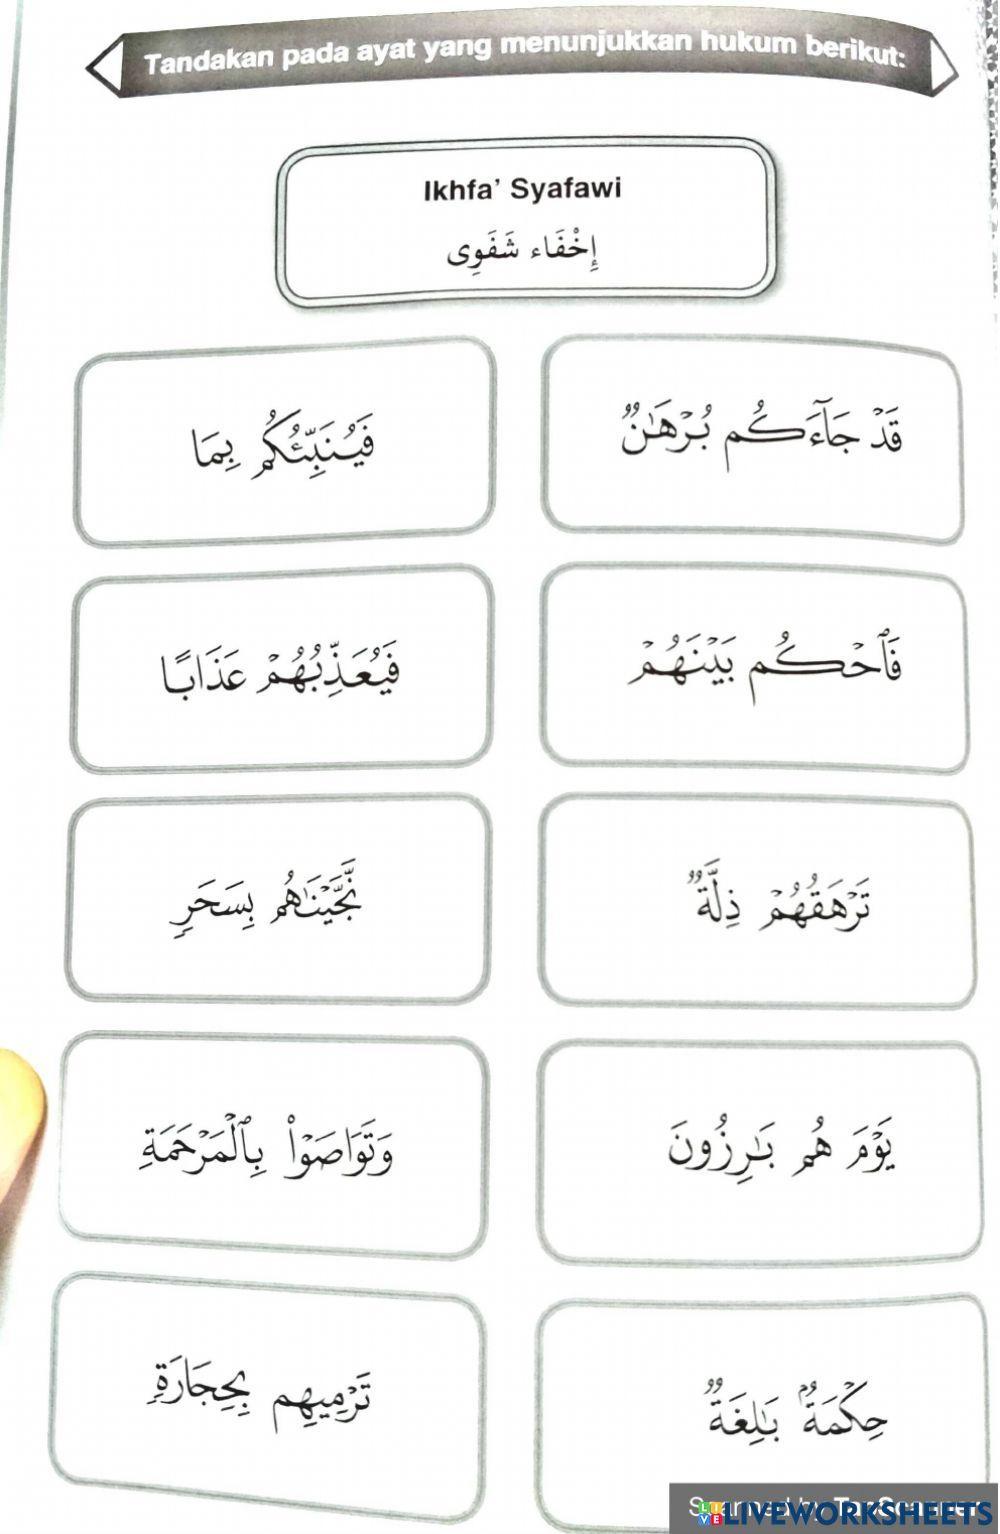 Tandakan pada ayat yang menunjukkan hukum berikut:
Ikhfa' Syafawi
إِخْفَاء شَفَوِى
قَدْ جَآءَكُم بُرْهَٰنٌ
فَيُنَبِّئُكُم بِمَا
فَٱحْكُم بَيْنَهُمْ
فَيُعَذِّبُهُمْ عَذَابًا
تَرْهَقُهُمْ ذِلَّةٌ
نَّجَّيْنَٰهُم بِسَحَرٍ
يَوْمَ هُم بَٰرِزُونَ
وَتَوَاصَوْا۟ بِٱلْمَرْحَمَةِ
حِكْمَةٌۢ بَٰلِغَةٌ
تَرْمِيهِم بِحِجَارَةٍ
LIVEWORKSHEETS